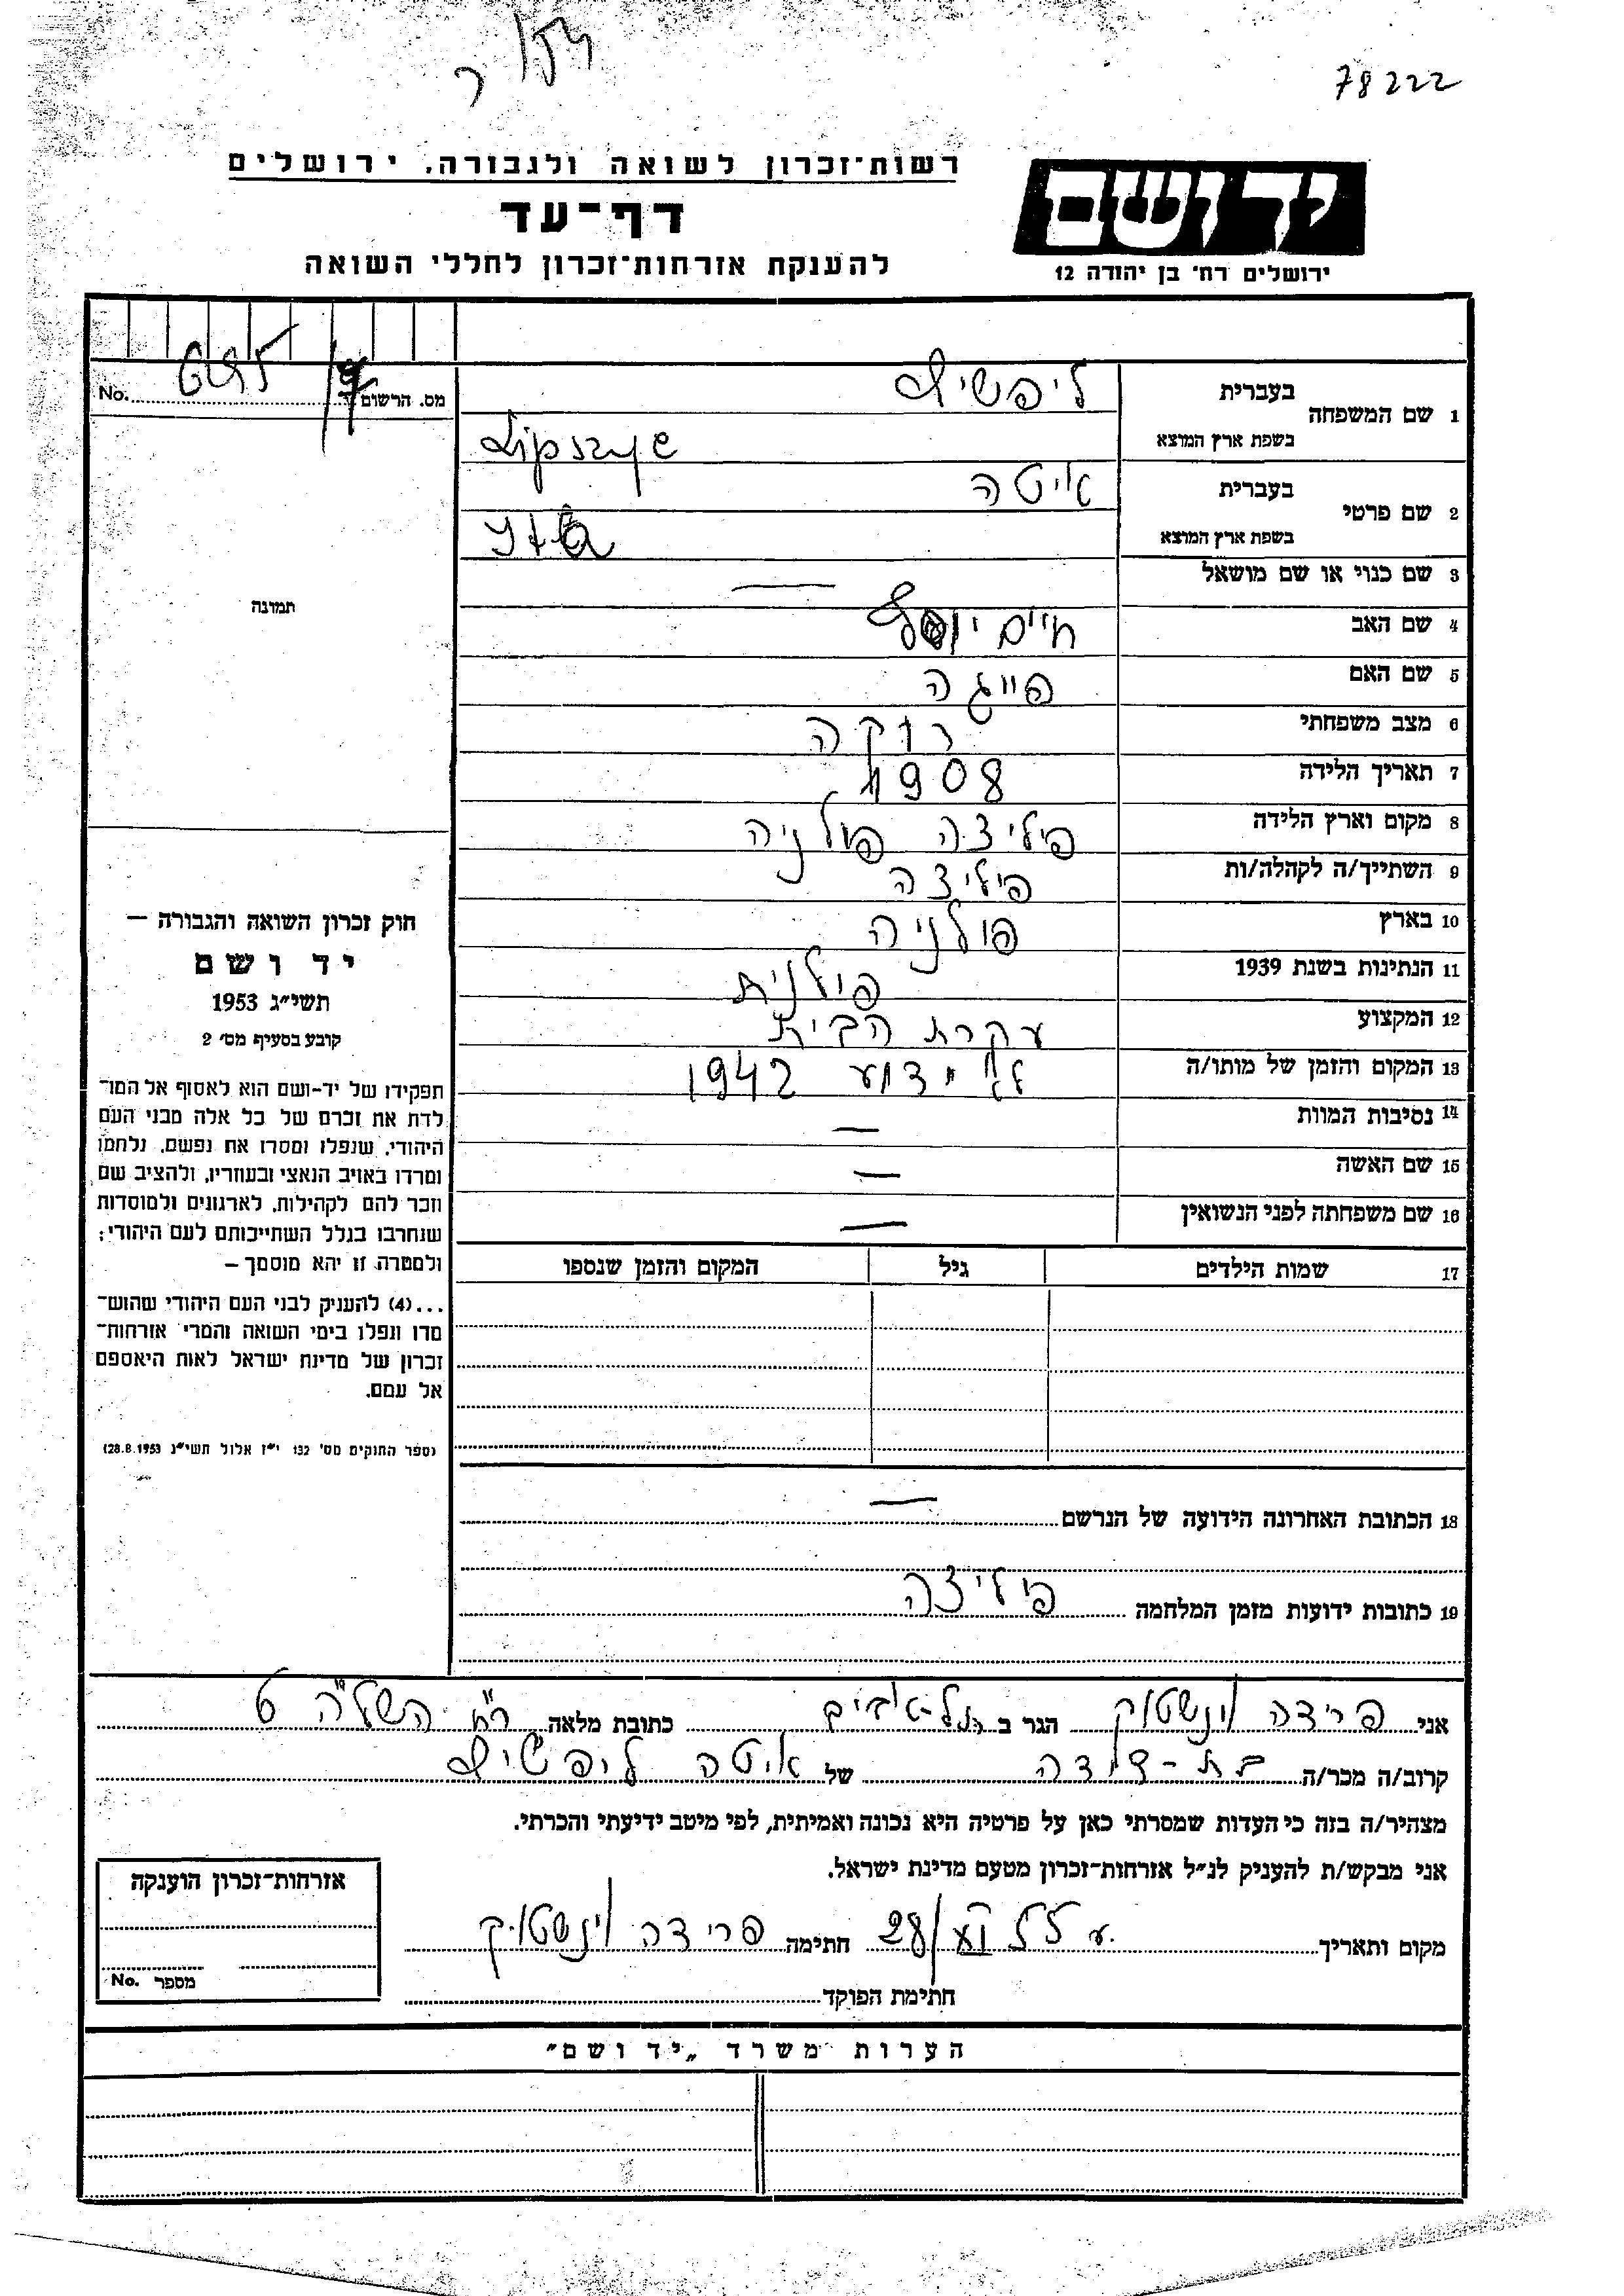 78222
רשות־זכרון לשואה ולגבורה, ירושלים
יד ושם
דף־עד
להענקת אזרחות־זכרון לחללי השואה
ירושלים רח' בן יהודה 12
מס. הרשום No. 695
1 שם המשפחה בעברית ליפשיץ
בשפת ארץ המוצא Lipszyc
2 שם פרטי בעברית איטה
בשפת ארץ המוצא Yta
3 שם כנוי או שם מושאל —
4 שם האב חיים יוסף
5 שם האם פייגה
6 מצב משפחתי רוקה
7 תאריך הלידה 1908
8 מקום וארץ הלידה פיליצה פולניה
9 השתייך/ה לקהלה/ות פיליצה
10 בארץ פולניה
11 הנתינות בשנת 1939 פולנית
12 המקצוע עקרת הבית
13 המקום והזמן של מותו/ה לא ידוע 1942
14 נסיבות המוות —
15 שם האשה —
16 שם משפחתה לפני הנשואין —
17 שמות הילדים גיל המקום והזמן שנספו
18 הכתובת האחרונה הידועה של הנרשם —
19 כתובות ידועות מזמן המלחמה פיליצה
תמונה
חוק זכרון השואה והגבורה —
יד ושם
תשי״ג 1953
קובע בסעיף מס׳ 2
תפקידו של יד-ושם הוא לאסוף אל המו־
לדת את זכרם של כל אלה מבני העם
היהודי, שנפלו ומסרו את נפשם, נלחמו
ומרדו באויב הנאצי ובעוזריו, ולהציב שם
וזכר להם לקהילות, לארגונים ולמוסדות
שנחרבו בגלל השתייכותם לעם היהודי;
ולמטרה זו יהא מוסמך —
...(4) להעניק לבני העם היהודי שהוש־
מדו ונפלו בימי השואה והמרי אזרחות־
זכרון של מדינת ישראל לאות היאספם
אל עמם.
(ספר החוקים מס' 132 י״ז אלול תשי״ג 28.8.1953)
אני פרידה וינשטוק הגר ב תל-אביב כתובת מלאה רח' השל"ה 6
קרוב/ה מכר/ה בת-דודה של איטה ליפשיץ
מצהיר/ה בזה כי העדות שמסרתי כאן על פרטיה היא נכונה ואמיתית, לפי מיטב ידיעתי והכרתי.
אני מבקש/ת להעניק לנ״ל אזרחות־זכרון מטעם מדינת ישראל.
מקום ותאריך 28/ חתימה פרידה וינשטוק
חתימת הפוקד
אזרחות־זכרון הוענקה
מספר No.
הערות משרד „יד ושם״